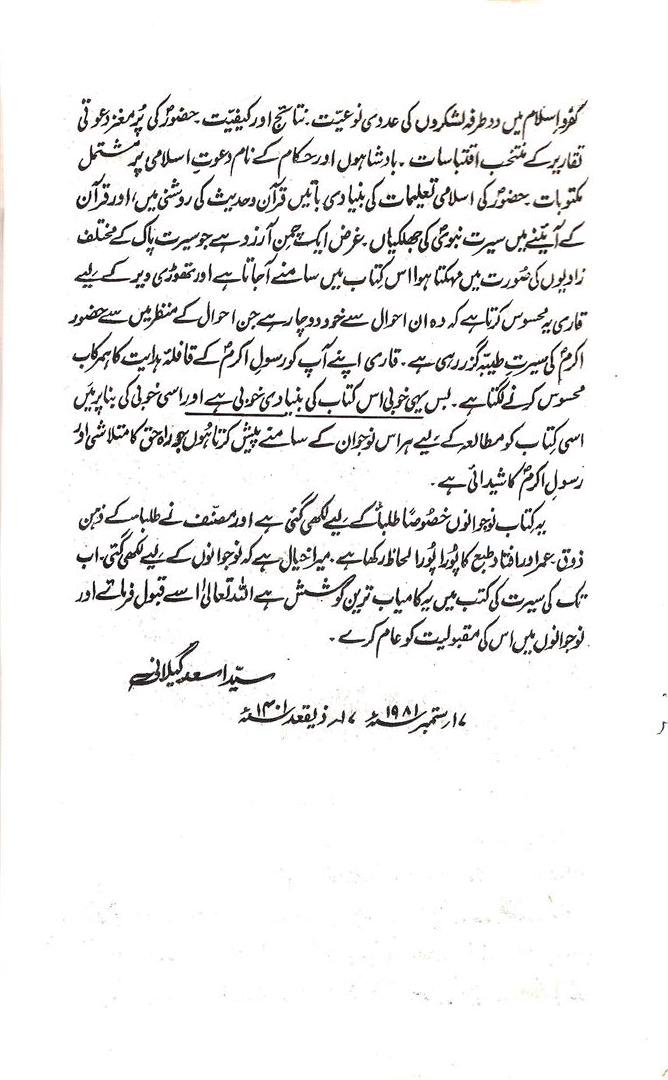 کفر و اسلام میں دو طرفہ لشکروں کی عددی نوعیّت۔ نتائج اور کیفیّت۔ حضورؐ کی پُر مغز دعوتی
تقاریر کے منتخب اقتباسات۔ بادشاہوں اور حکام کے نام دعوتِ اسلامی پر مشتمل
مکتوبات۔ حضورؐ کی اسلامی تعلیمات کی بنیادی باتیں قرآن و حدیث کی روشنی میں، اور قرآن
کے آئینے میں سیرت نبویؐ کی جھلکیاں۔ غرض ایک چمن آرزو ہے جو سیرت پاک کے مختلف
زاویوں کی صُورت میں مہکتا ہوا اس کتاب میں سامنے آجاتا ہے اور تھوڑی دیر کے لیے
قاری یہ محسوس کرتا ہے کہ وہ ان احوال سے خود دوچار ہے جن احوال کے منظر میں سے حضور
اکرمؐ کی سیرتِ طیبّہ گزر رہی ہے۔ قاری اپنے آپ کو رسولِ اکرمؐ کے قافلۂ ہدایت کا ہمرکاب
محسوس کرنے لگتا ہے۔ بس یہی خوبی اس کتاب کی بنیادی خوبی ہے اور اسی خوبی کی بنا پر میں
اسی کتاب کو مطالعہ کے لیے ہر اس نوجوان کے سامنے پیش کرتا ہوں جو راہ حق کا متلاشی اور
رسولِ اکرمؐ کا شیدائی ہے۔
یہ کتاب نوجوانوں خصوصًا طلباء کے لیے لکھی گئی ہے اور مصنّف نے طلباء کے ذہن
ذوق۔ عمر اور افتاد طبع کا پُورا پُورا لحاظ رکھا ہے۔ میرا خیال ہے کہ نوجوانوں کے لیے لکھی گئی۔ اب
تک کی سیرت کی کتب میں یہ کامیاب ترین کوشش ہے اللہ تعالیٰ اسے قبول فرمائے اور
نوجوانوں میں اس کی مقبولیت کو عام کرے۔
سیّد اسعد گیلانی
۱۷ ستمبر ۱۹۸۱ء ۱۷ ذیقعد ۱۴۰۱ھ